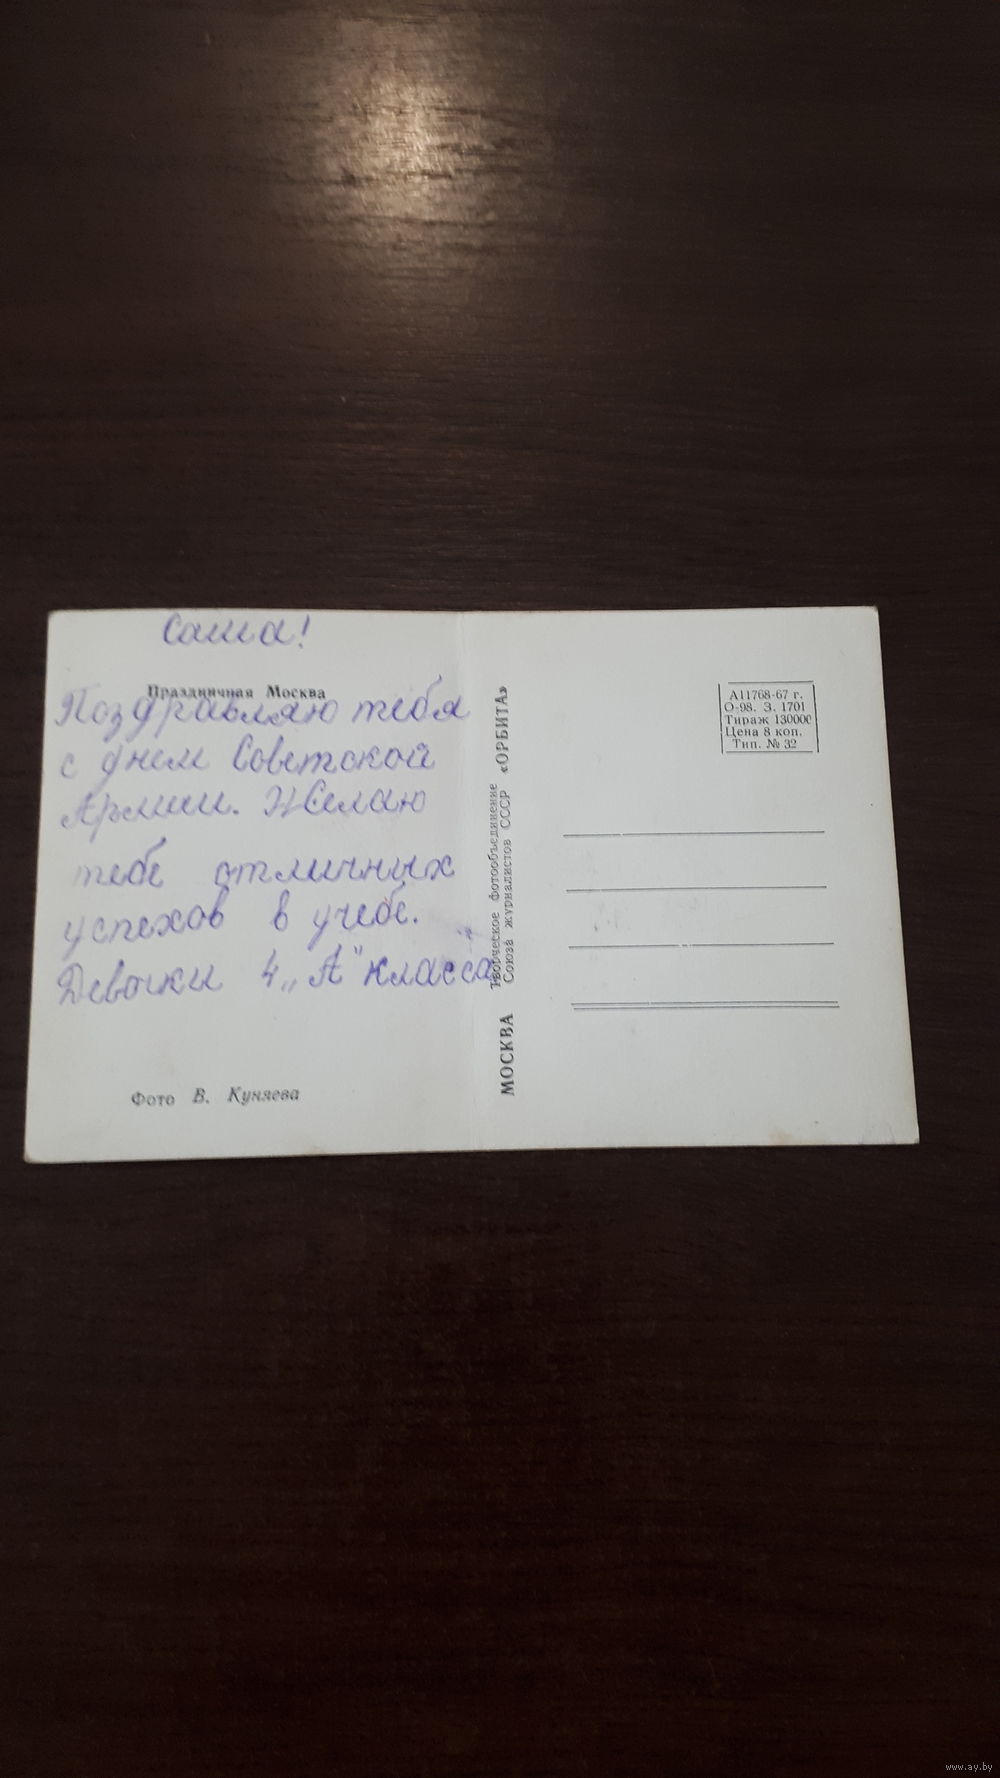 Саша!
Праздничная Москва
Поздравляю тебя
с днем Советской
Армии. Желаю
тебе отличных
успехов в учебе.
Девочки 4 „А" класса.
Фото В. Куняева
МОСКВА Творческое фотообъединение Союза журналистов СССР «ОРБИТА»
А11768-67 г.
О-98. З. 1701
Тираж 130000
Цена 8 коп.
Тип. № 32
www.ay.by